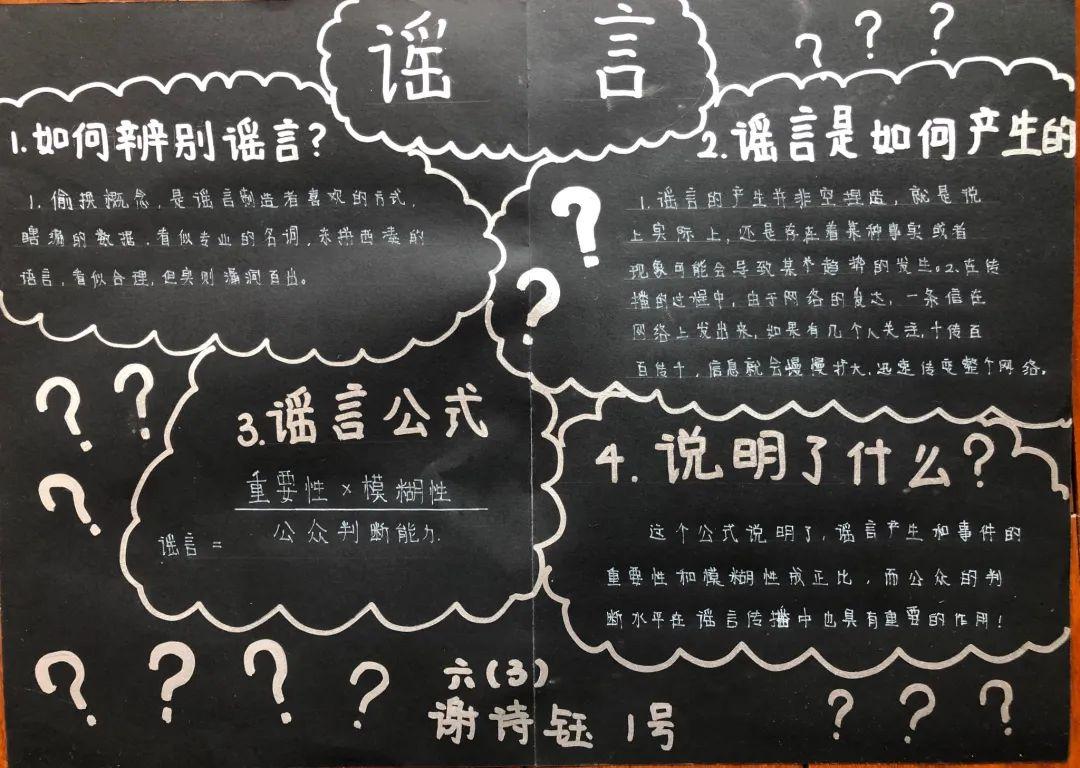 谣言
1.如何辨别谣言?
1.偷换概念，是谣言制造者喜欢的方式，
瞎编的数据，看似专业的名词，未拼西凑的
语言，看似合理，但实则漏洞百出。
2.谣言是如何产生的
1.谣言的产生并非空捏造，就是说
上实际上，还是存在着某种事实或者
现象可能会导致某个趋势的发生。2.在传
播的过程中，由于网络的复杂，一条信在
网络上发出来，如果有几个人关注，十传百
百传千，信息就会慢慢扩大，迅速传变整个网络。
3.谣言公式
重要性×模糊性
谣言=
公众判断能力.
4.说明了什么?
这个公式说明了，谣言产生和事件的
重要性和模糊性成正比，而公众的判
断水平在谣言传播中也具有重要的作用!
六(3)
谢诗钰 1号